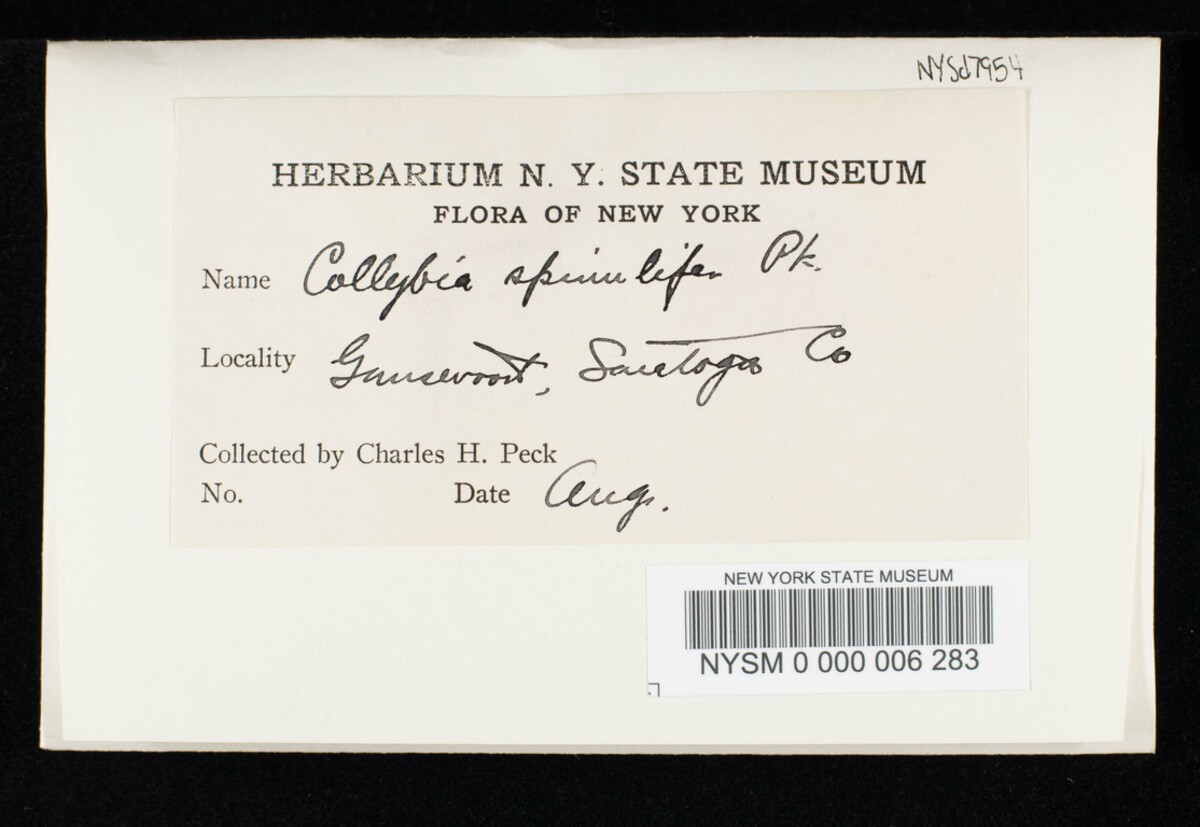 NYSd7954
HERBARIUM N. Y. STATE MUSEUM
FLORA OF NEW YORK
Name Collybia spinulifer Pk.
Locality Gansevoort, Saratoga Co
Collected by Charles H. Peck
No. Date Aug.
NEW YORK STATE MUSEUM
NYSM 0 000 006 283